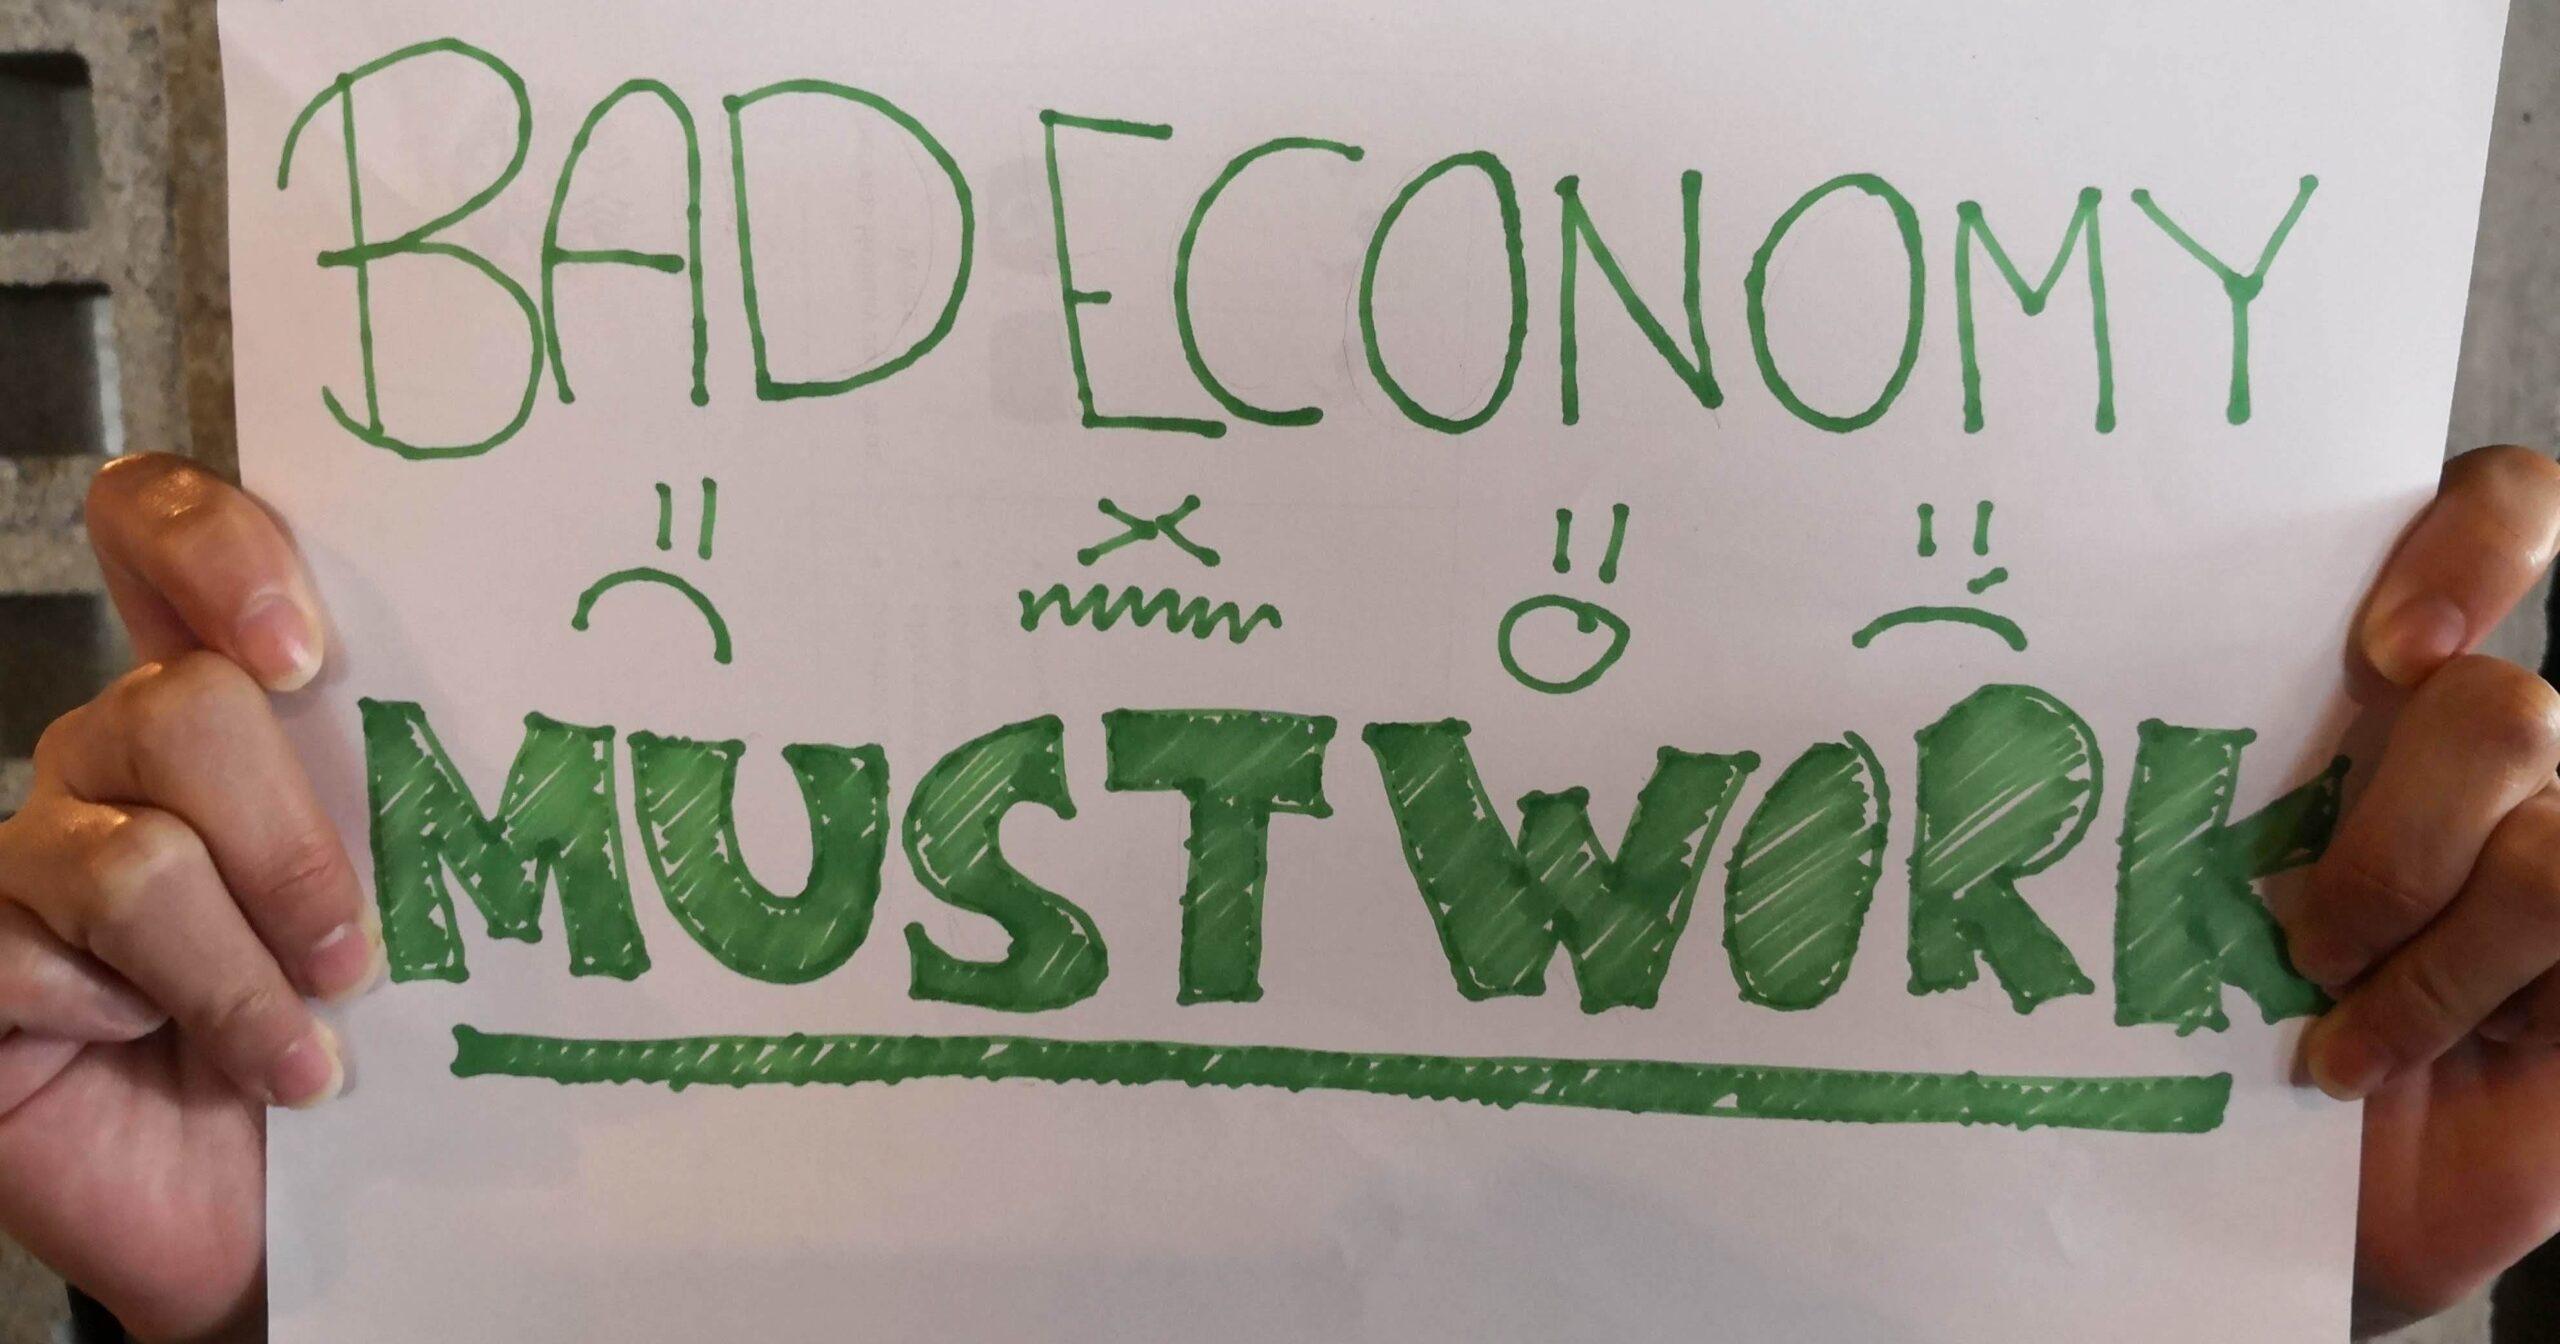 BAD ECONOMY
MUST WORK